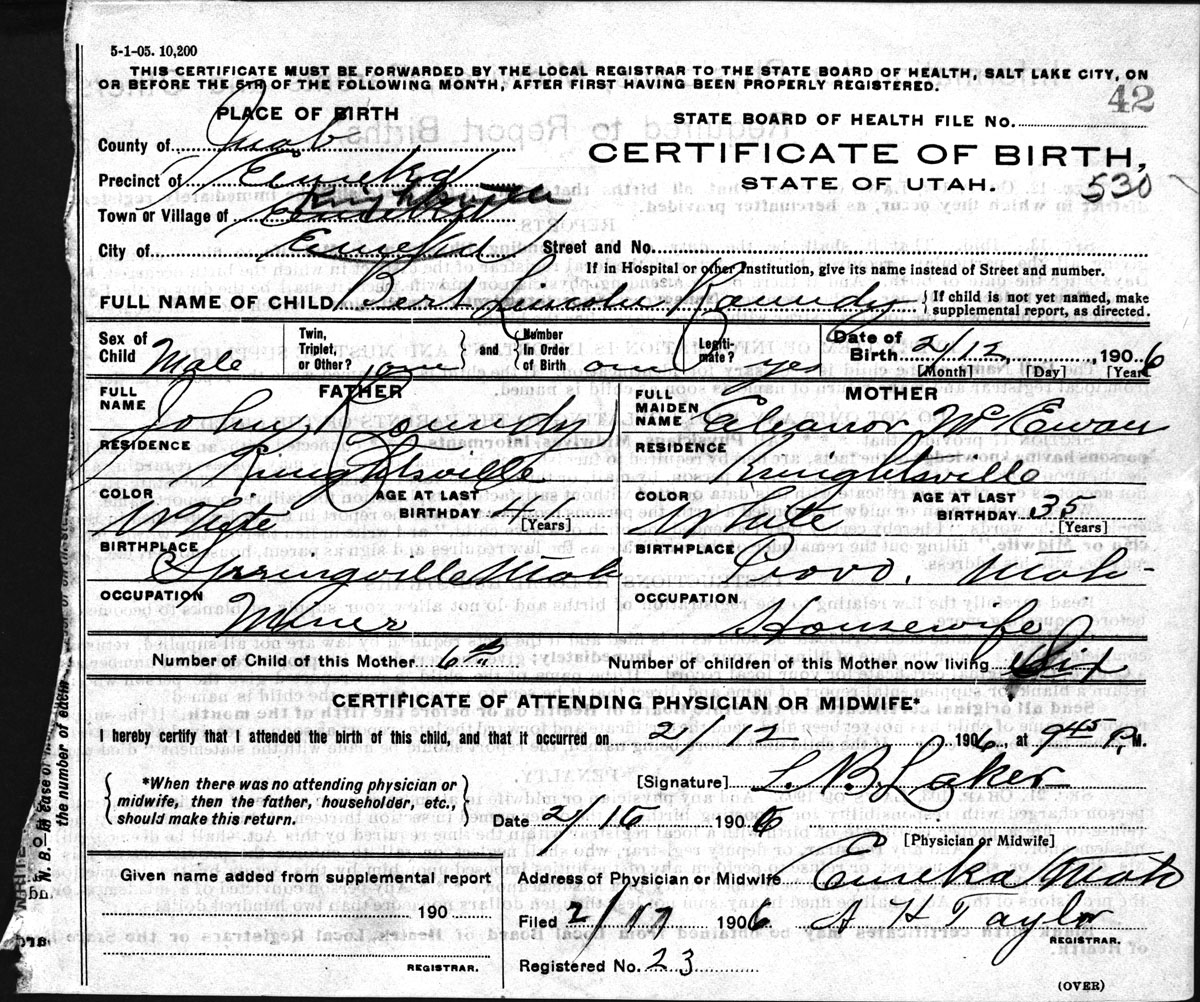 5-1-05. 10,200
THIS CERTIFICATE MUST BE FORWARDED BY THE LOCAL REGISTRAR TO THE STATE BOARD OF HEALTH, SALT LAKE CITY, ON
OR BEFORE THE 5TH OF THE FOLLOWING MONTH, AFTER FIRST HAVING BEEN PROPERLY REGISTERED.
42
PLACE OF BIRTH
STATE BOARD OF HEALTH FILE No.
County of Juab
CERTIFICATE OF BIRTH,
Precinct of Eureka
STATE OF UTAH.
530
Town or Village of Knightsville
City of Eureka Street and No.
If in Hospital or other Institution, give its name instead of Street and number.
FULL NAME OF CHILD Bert Roundy
If child is not yet named, make
supplemental report, as directed.
Sex of Child Male
Twin, Triplet, or Other? one
and Number in Order of Birth one
Legitimate? yes
Date of Birth 2/12, 1906
[Month] [Day] [Year]
FATHER
FULL NAME John Roundy
MOTHER
FULL MAIDEN NAME Eleanor McEwan
RESIDENCE Knightsville
RESIDENCE Knightsville
COLOR White
AGE AT LAST BIRTHDAY [Years]
COLOR White
AGE AT LAST BIRTHDAY 35 [Years]
BIRTHPLACE Springville Utah
BIRTHPLACE Provo, Utah
OCCUPATION Miner
OCCUPATION Housewife
Number of Child of this Mother 6th
Number of children of this Mother now living
CERTIFICATE OF ATTENDING PHYSICIAN OR MIDWIFE*
I hereby certify that I attended the birth of this child, and that it occurred on 2/12 1906, at 9 45 P. M.
*When there was no attending physician or
midwife, then the father, householder, etc.,
should make this return.
[Signature] L. B. Laker
Date 2/16 1906
[Physician or Midwife]
Given name added from supplemental report
190
REGISTRAR.
Address of Physician or Midwife Eureka Utah
Filed 2/17 1906 A H Taylor
REGISTRAR.
Registered No. 23
(OVER)
N. B.—In case of
the number of each